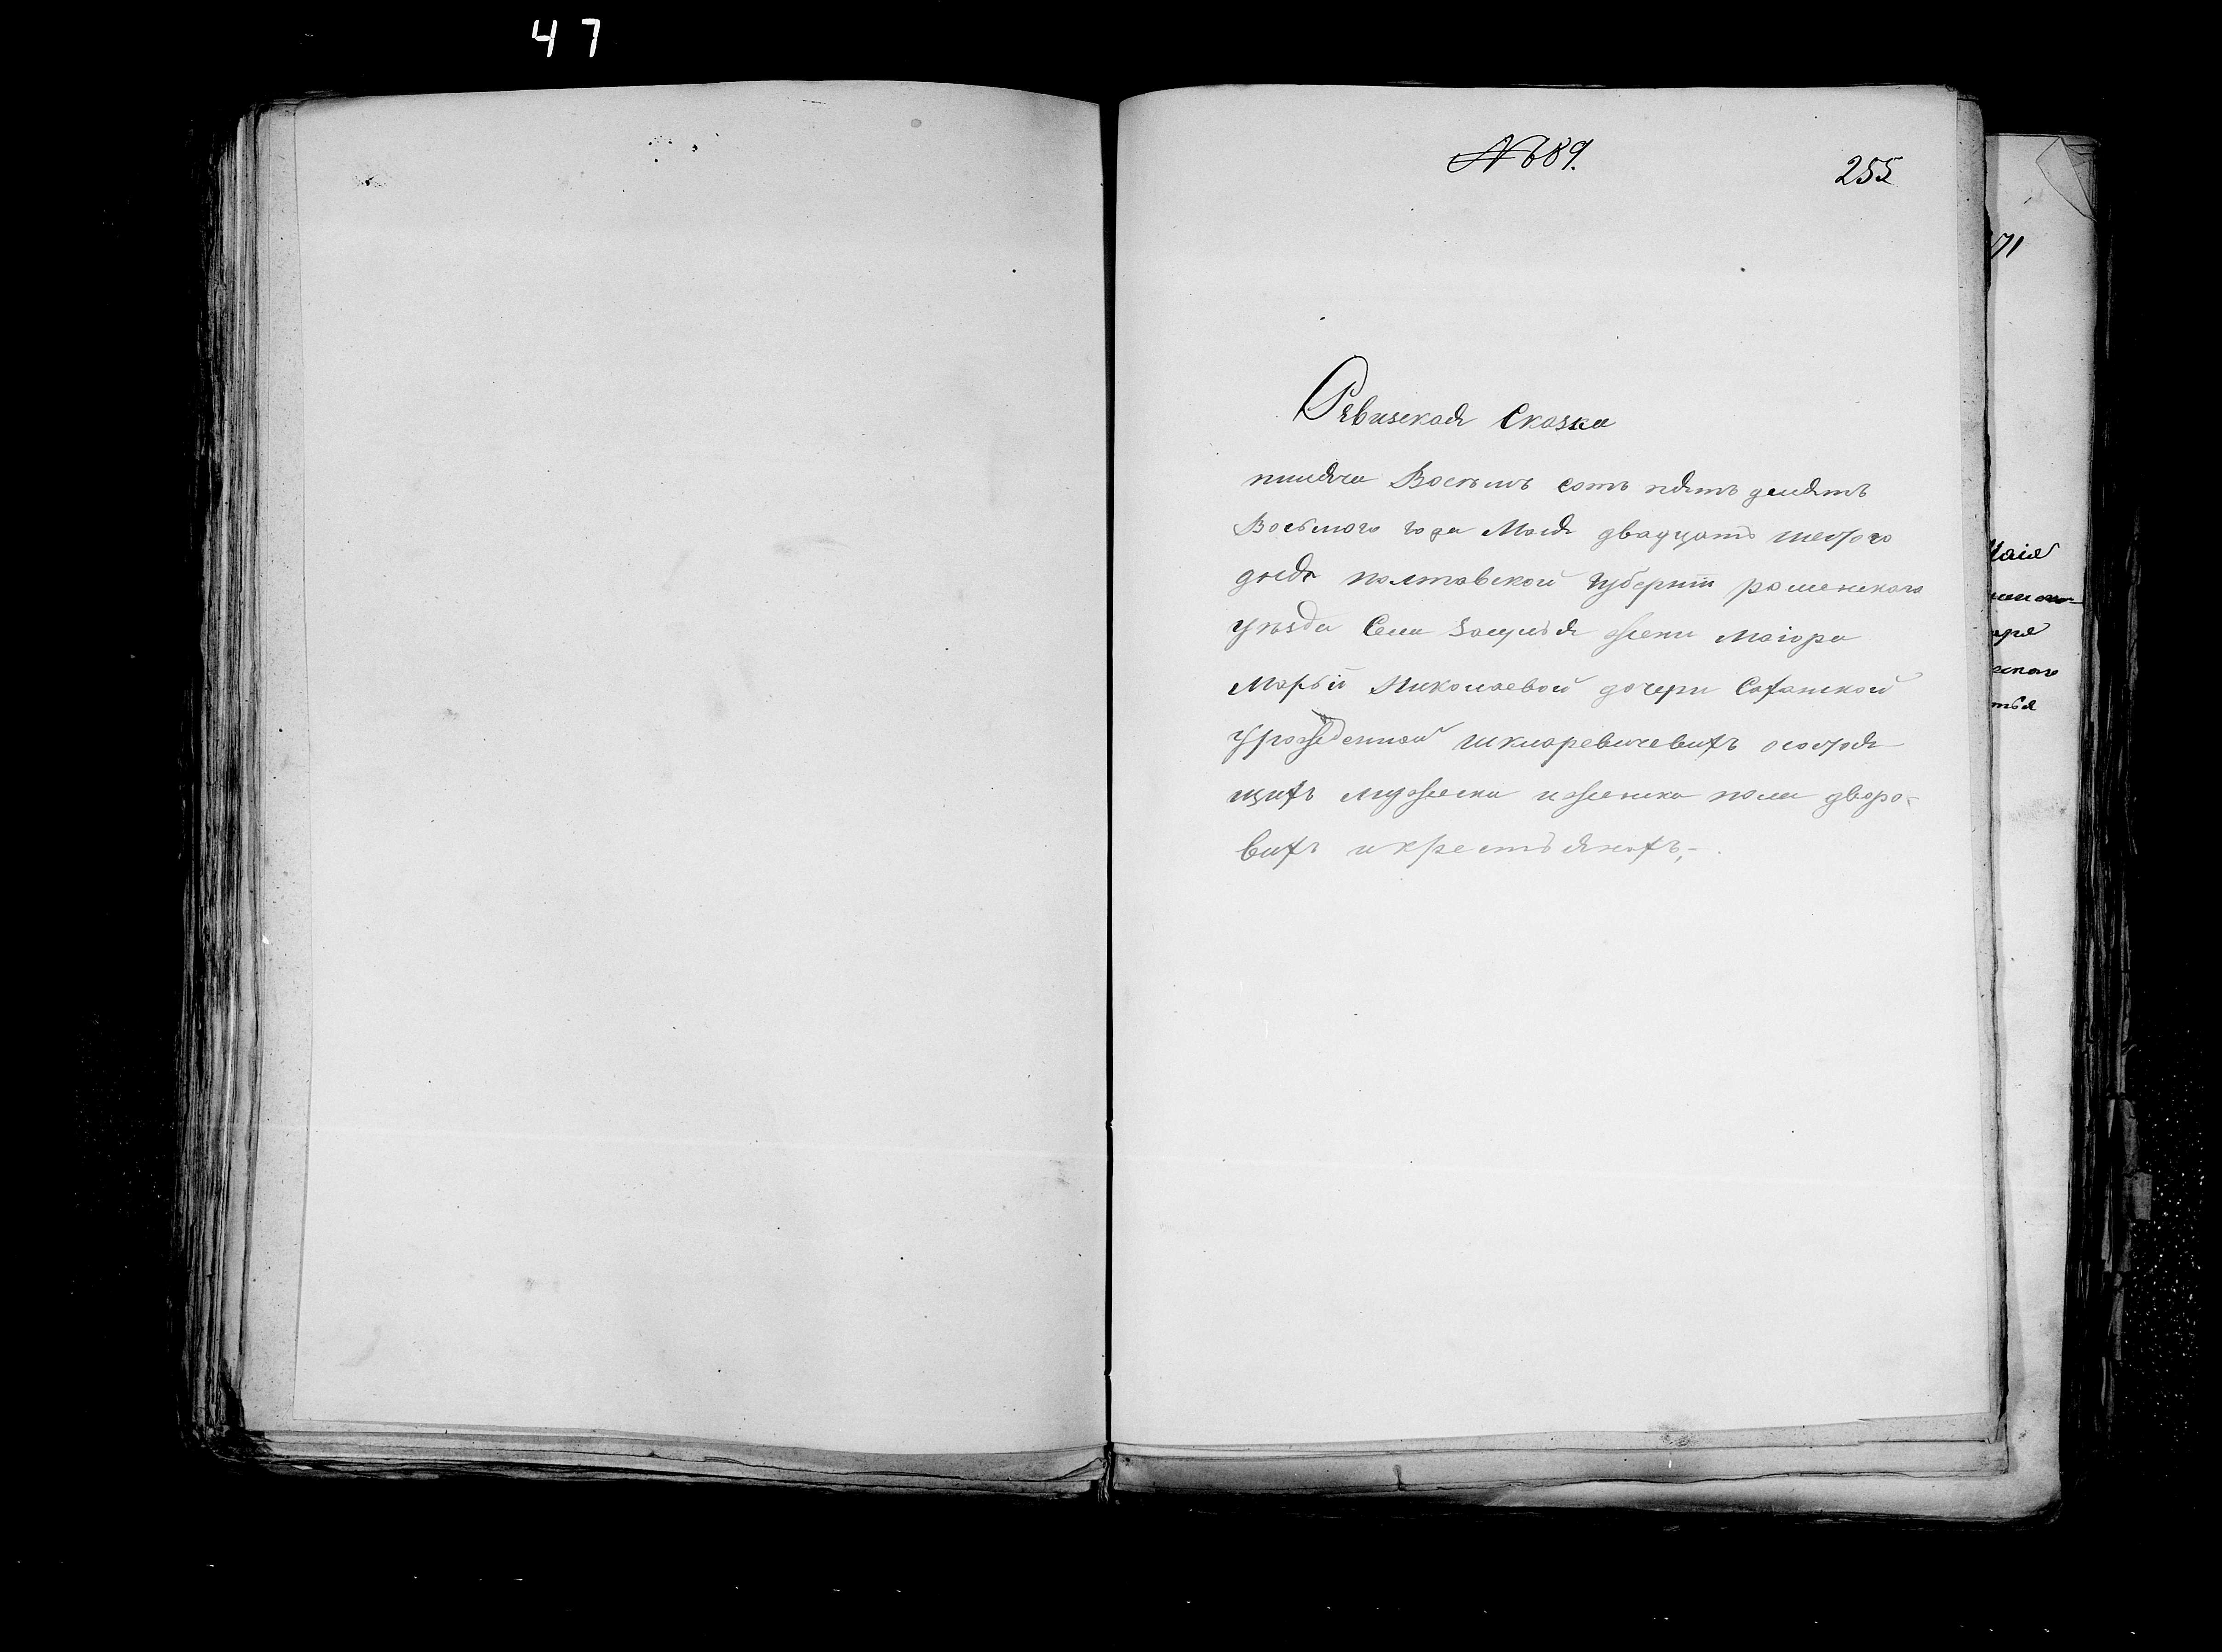 47
№ 89.
255
Ревизская Сказка
тисяча Восемъ сотъ пять десятъ
Восьмого года Маія двадцать шестого
дня полтавской Губерніи роменскаго
уѣзда Села Засулья жени Маіора
Марьи Николаевой дочери
урожденной осостоя
щихъ мужеска иженска пола дворо-
вихъ икрестьянахъ,-
71
Маія